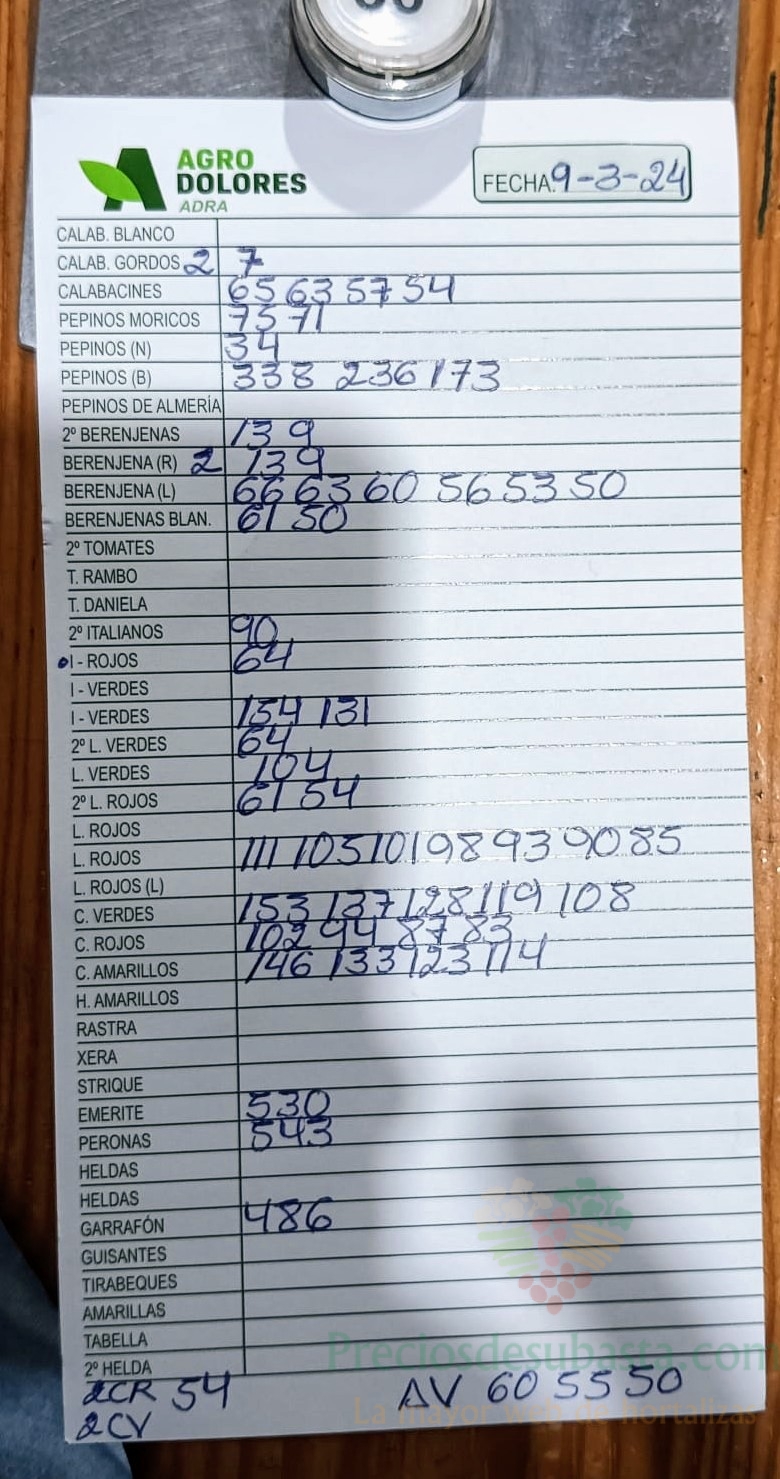 AGRO
DOLORES
ADRA
FECHA: 9-3-24
CALAB. BLANCO
CALAB. GORDOS 2 7
CALABACINES 65 63 57 54
PEPINOS MORICOS 75 71
PEPINOS (N) 34
PEPINOS (B) 338 236 173
PEPINOS DE ALMERÍA
2º BERENJENAS 13 9
BERENJENA (R) 2 13 9
BERENJENA (L) 66 63 60 56 53 50
BERENJENAS BLAN. 61 50
2º TOMATES
T. RAMBO
T. DANIELA
2º ITALIANOS 90
I - ROJOS 64
I - VERDES
I - VERDES 154 131
2º L. VERDES 64
L. VERDES 104
2º L. ROJOS 61 54
L. ROJOS
L. ROJOS 111 105 101 98 93 90 85
L. ROJOS (L)
C. VERDES 153 137 128 119 108
C. ROJOS 102 94 87 83
C. AMARILLOS 146 133 123 114
H. AMARILLOS
RASTRA
XERA
STRIQUE
EMERITE 530
PERONAS 543
HELDAS
HELDAS
GARRAFÓN 486
GUISANTES
TIRABEQUES
AMARILLAS
TABELLA
2º HELDA
Preciosdesubasta.com
2CR 54 AV 60 55 50
La mayor web de hortalizas
2CV